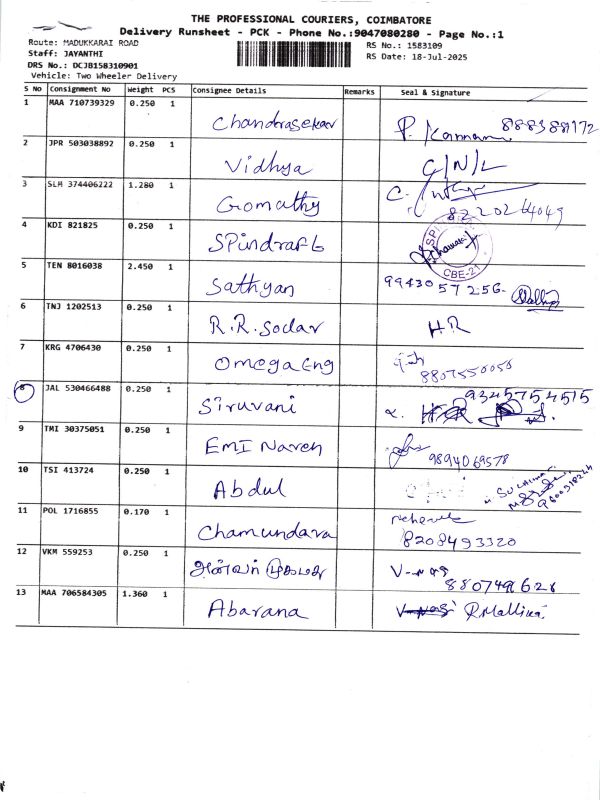 THE PROFESSIONAL COURIERS, COIMBATORE
Delivery Runsheet - PCK - Phone No.:9047080280 - Page No.:1
Route: MADUKKARAI ROAD
Staff: JAYANTHI
DRS No.: DCJB158310901
Vehicle: Two Wheeler Delivery
RS No.: 1583109
RS Date: 18-Jul-2025
S No Consignment No Weight PCS Consignee Details Remarks Seal & Signature
1 MAA 710739329 0.250 1 Chandrasekar P. Kannan
2 JPR 503038892 0.250 1 Vidhya G/N/L
3 SLM 374406222 1.280 1 Gomathy C. 8220264049
4 KDI 821825 0.250 1 SPindraft SPI CBE-21
5 TEN 8016038 2.450 1 Sathyan 9943057256
6 TNJ 1202513 0.250 1 R.R.Sodar HR
7 KRG 4706430 0.250 1 Omega Eng 8807550050
8 JAL 530466488 0.250 1 Siruvani 9345754515
9 TMI 30375051 0.250 1 EMI Naren 9894069578
10 TSI 413724 0.250 1 Abdul
11 POL 1716855 0.170 1 Chamundara 8208493320
12 VKM 559253 0.250 1 அன்வர் 8807491626
13 MAA 706584305 1.360 1 Abarana R.Mallika